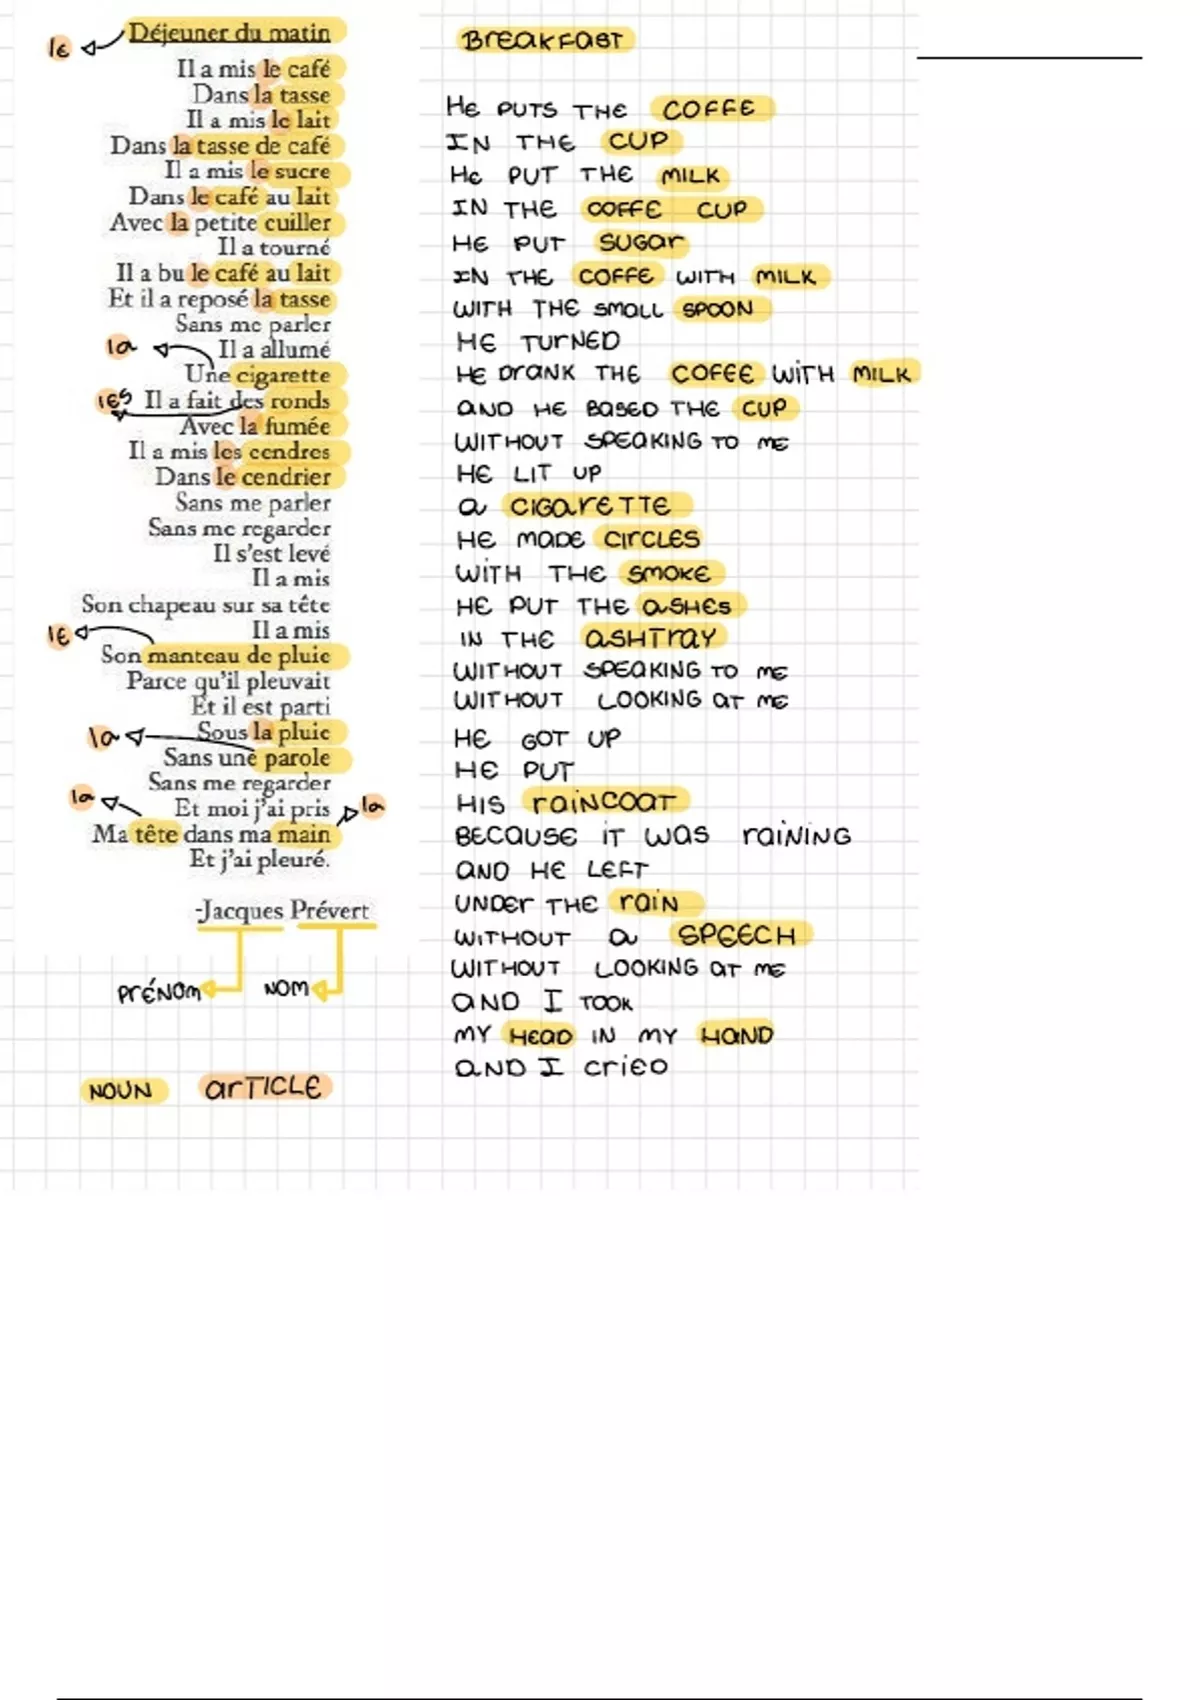 Déjeuner du matin
le
Il a mis le café
Dans la tasse
Il a mis le lait
Dans la tasse de café
Il a mis le sucre
Dans le café au lait
Avec la petite cuiller
Il a tourné
Il a bu le café au lait
Et il a reposé la tasse
Sans me parler
Il a allumé
la
Une cigarette
les
Il a fait des ronds
Avec la fumée
Il a mis les cendres
Dans le cendrier
Sans me parler
Sans me regarder
Il s'est levé
Il a mis
Son chapeau sur sa tête
Il a mis
le
Son manteau de pluie
Parce qu'il pleuvait
Et il est parti
Sous la pluie
la
Sans une parole
Sans me regarder
la
Et moi j'ai pris
la
Ma tête dans ma main
Et j'ai pleuré.
-Jacques Prévert
PRÉNOM NOM
NOUN ARTICLE
BREAKFAST
HE PUTS THE COFFE
IN THE CUP
HE PUT THE MILK
IN THE COFFE CUP
HE PUT SUGAR
IN THE COFFE WITH MILK
WITH THE SMALL SPOON
HE TURNED
HE DRANK THE COFEE WITH MILK
AND HE BASED THE CUP
WITHOUT SPEAKING TO ME
HE LIT UP
A CIGARETTE
HE MADE CIRCLES
WITH THE SMOKE
HE PUT THE ASHES
IN THE ASHTRAY
WITHOUT SPEAKING TO ME
WITHOUT LOOKING AT ME
HE GOT UP
HE PUT
HIS RAINCOAT
BECAUSE IT WAS RAINING
AND HE LEFT
UNDER THE RAIN
WITHOUT A SPEECH
WITHOUT LOOKING AT ME
AND I TOOK
MY HEAD IN MY HAND
AND I CRIED